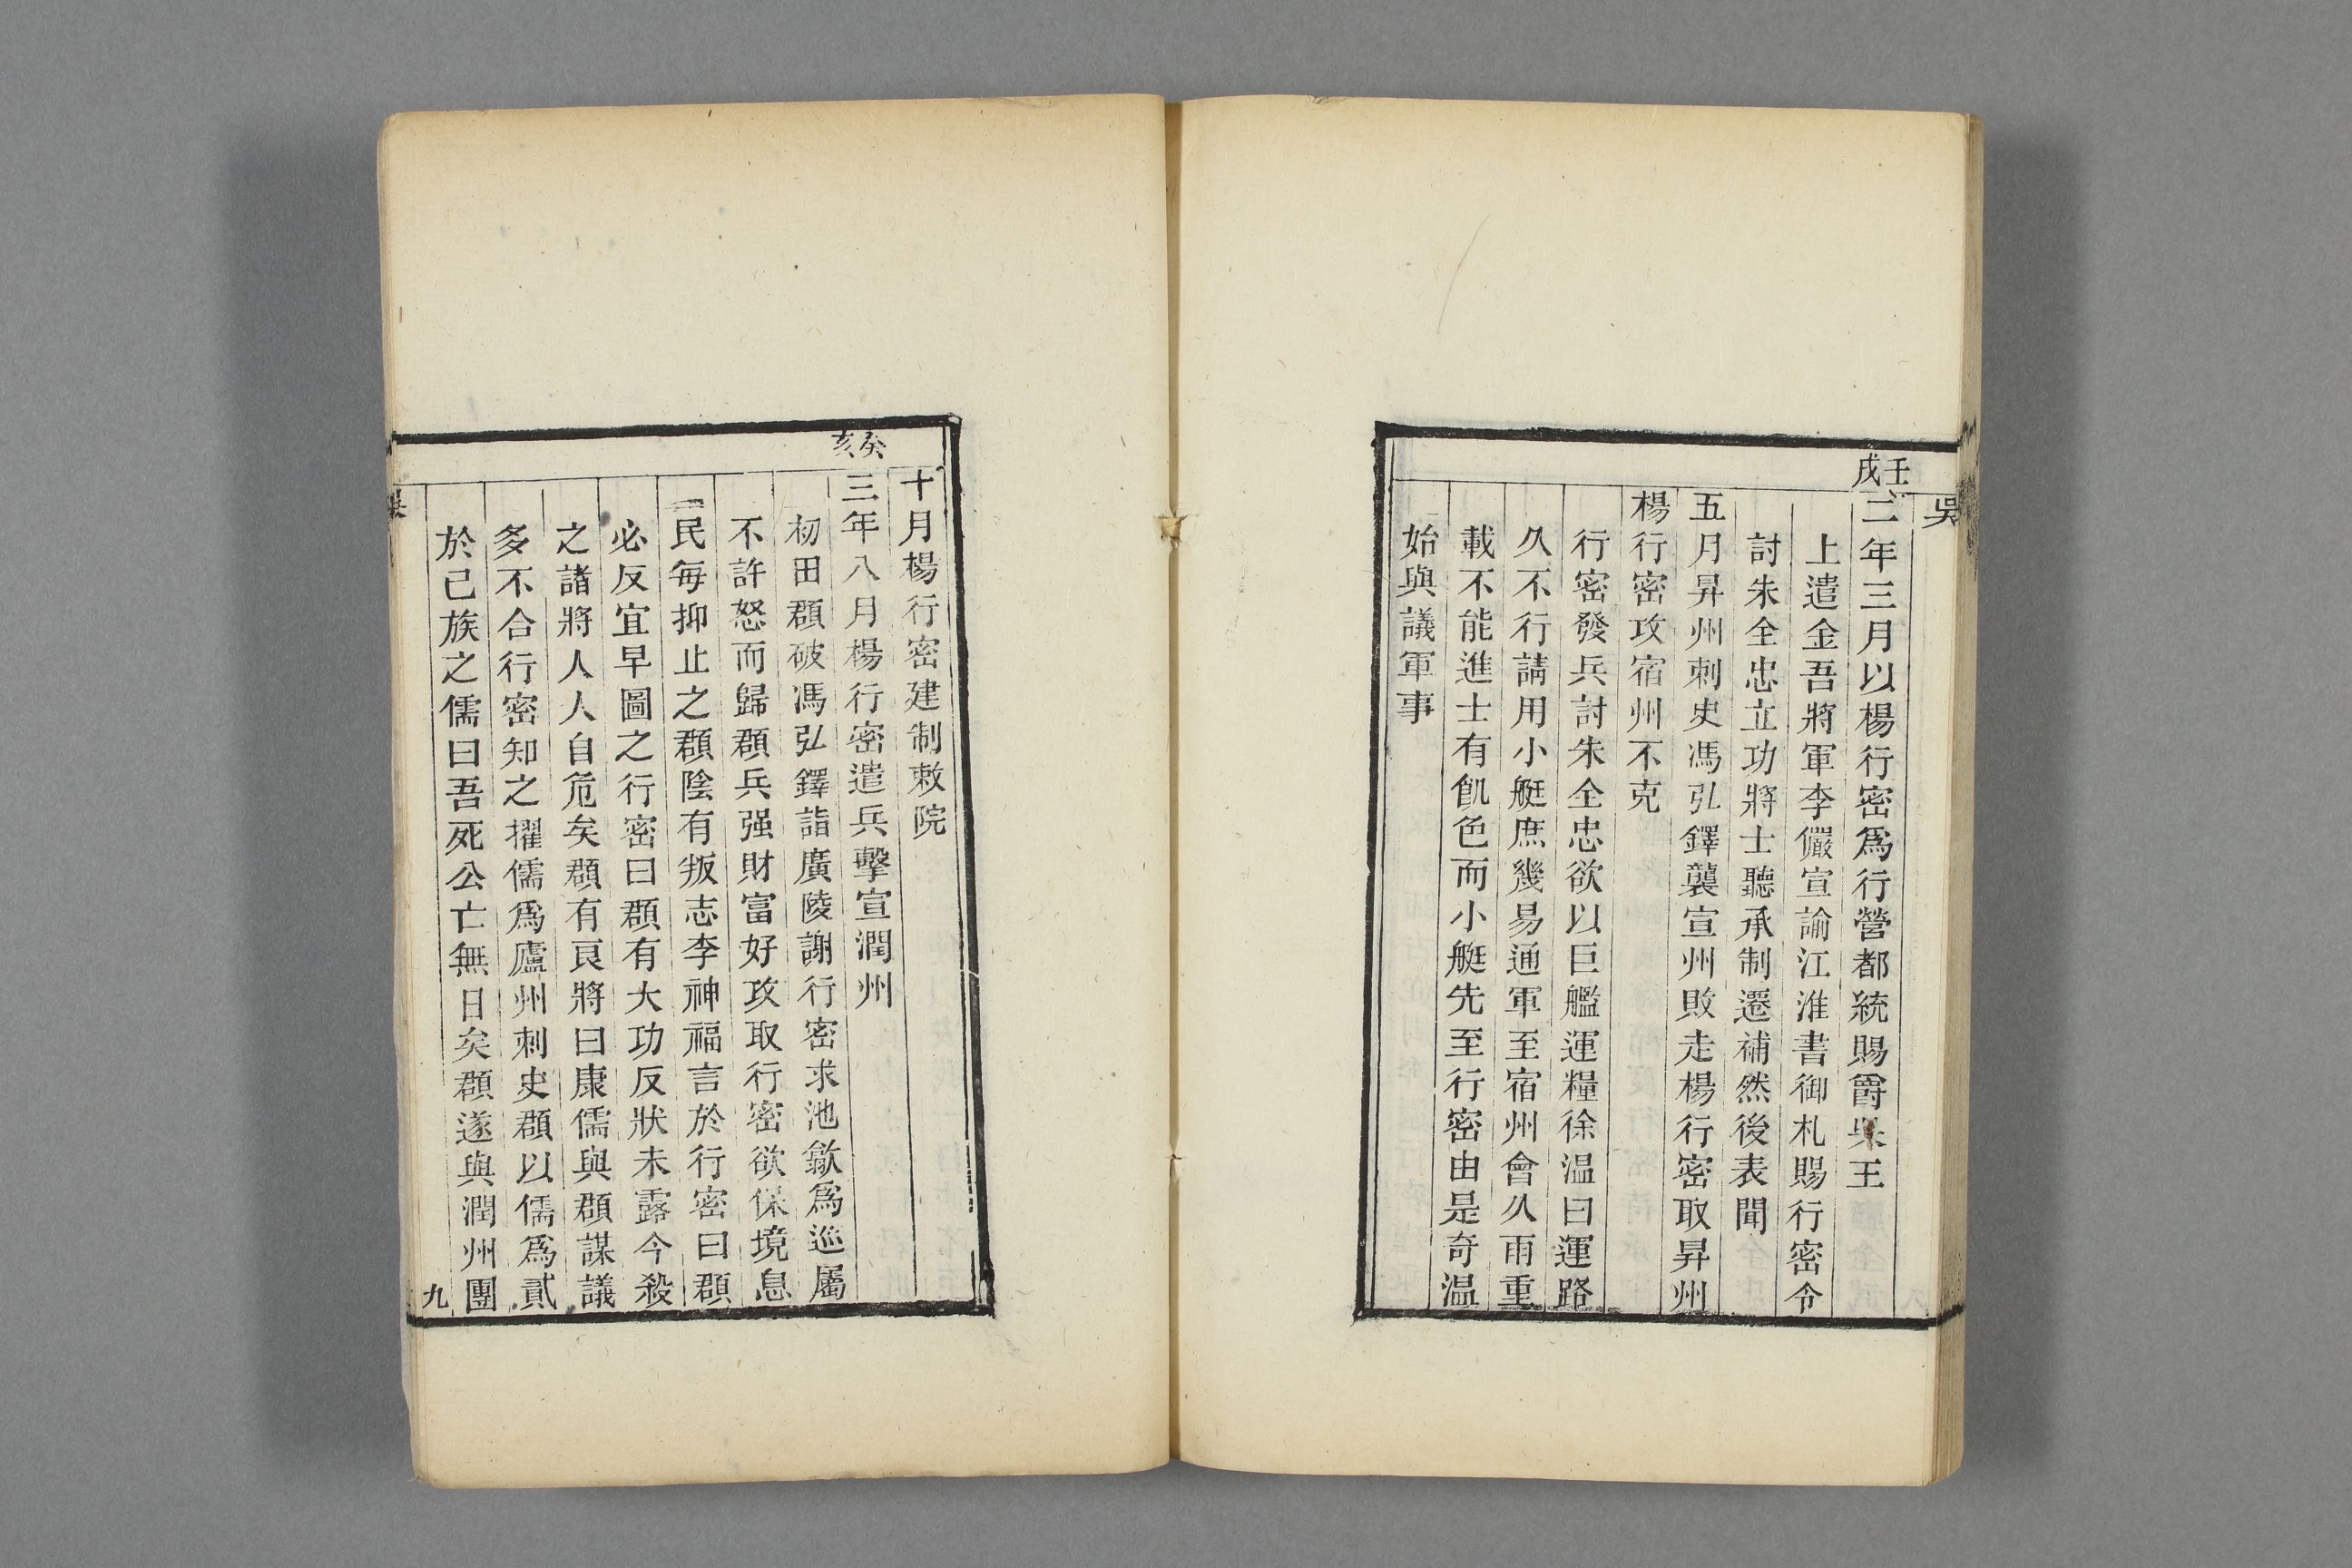 吳
壬戌
二年三月以楊行密爲行營都統賜爵吳王
上遣金吾將軍李儼宣諭江淮書御札賜行密令
討朱全忠立功將士聽承制遷補然後表聞
五月昇州刺史馮弘鐸襲宣州敗走楊行密取昇州
楊行密攻宿州不克
行密發兵討朱全忠欲以巨艦運糧徐温曰運路
久不行請用小艇庶幾易通軍至宿州會久雨重
載不能進士有飢色而小艇先至行密由是奇温
始與議軍事
十月楊行密建制敕院
癸亥
三年八月楊行密遣兵擊宣潤州
初田頵破馮弘鐸詣廣陵謝行密求池歙爲巡屬
不許怒而歸頵兵强財富好攻取行密欲保境息
民每抑止之頵陰有叛志李神福言於行密曰頵
必反宜早圖之行密曰頵有大功反狀未露今殺
之諸將人人自危矣頵有良將曰康儒與頵謀議
多不合行密知之擢儒爲廬州刺史頵以儒爲貳
於己族之儒曰吾死公亡無日矣頵遂與潤州團
吳
九